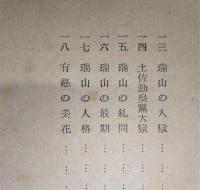 一三 瑞山の入獄……
一四 土佐勤皇黨大獄……
一五 瑞山の糺問……
一六 瑞山の最期……
一七 瑞山の人格……
一八 有終の美花……